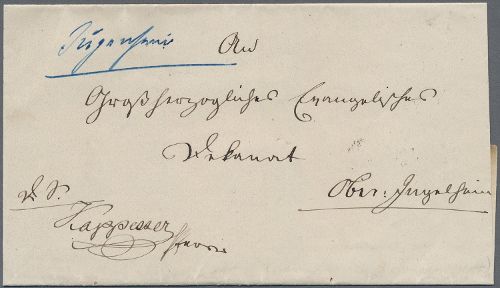 Jügenheim
An
Großherzogliches Evangelisches
Dekanat
Ober-Ingelheim
D. S.
Kappesser
Pfarrer